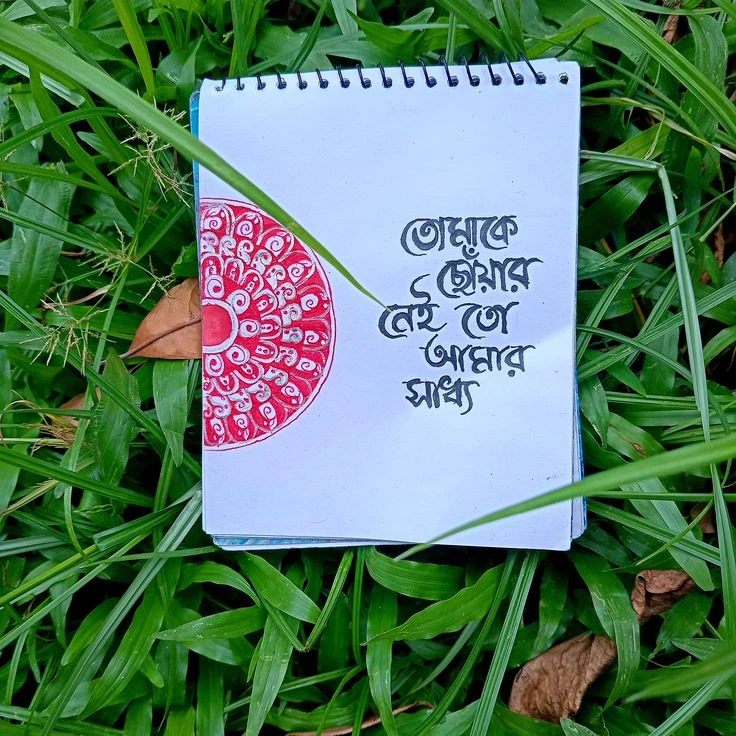 তোমাকে
ছোঁয়ার
নেই তো
আমার
সাধ্য